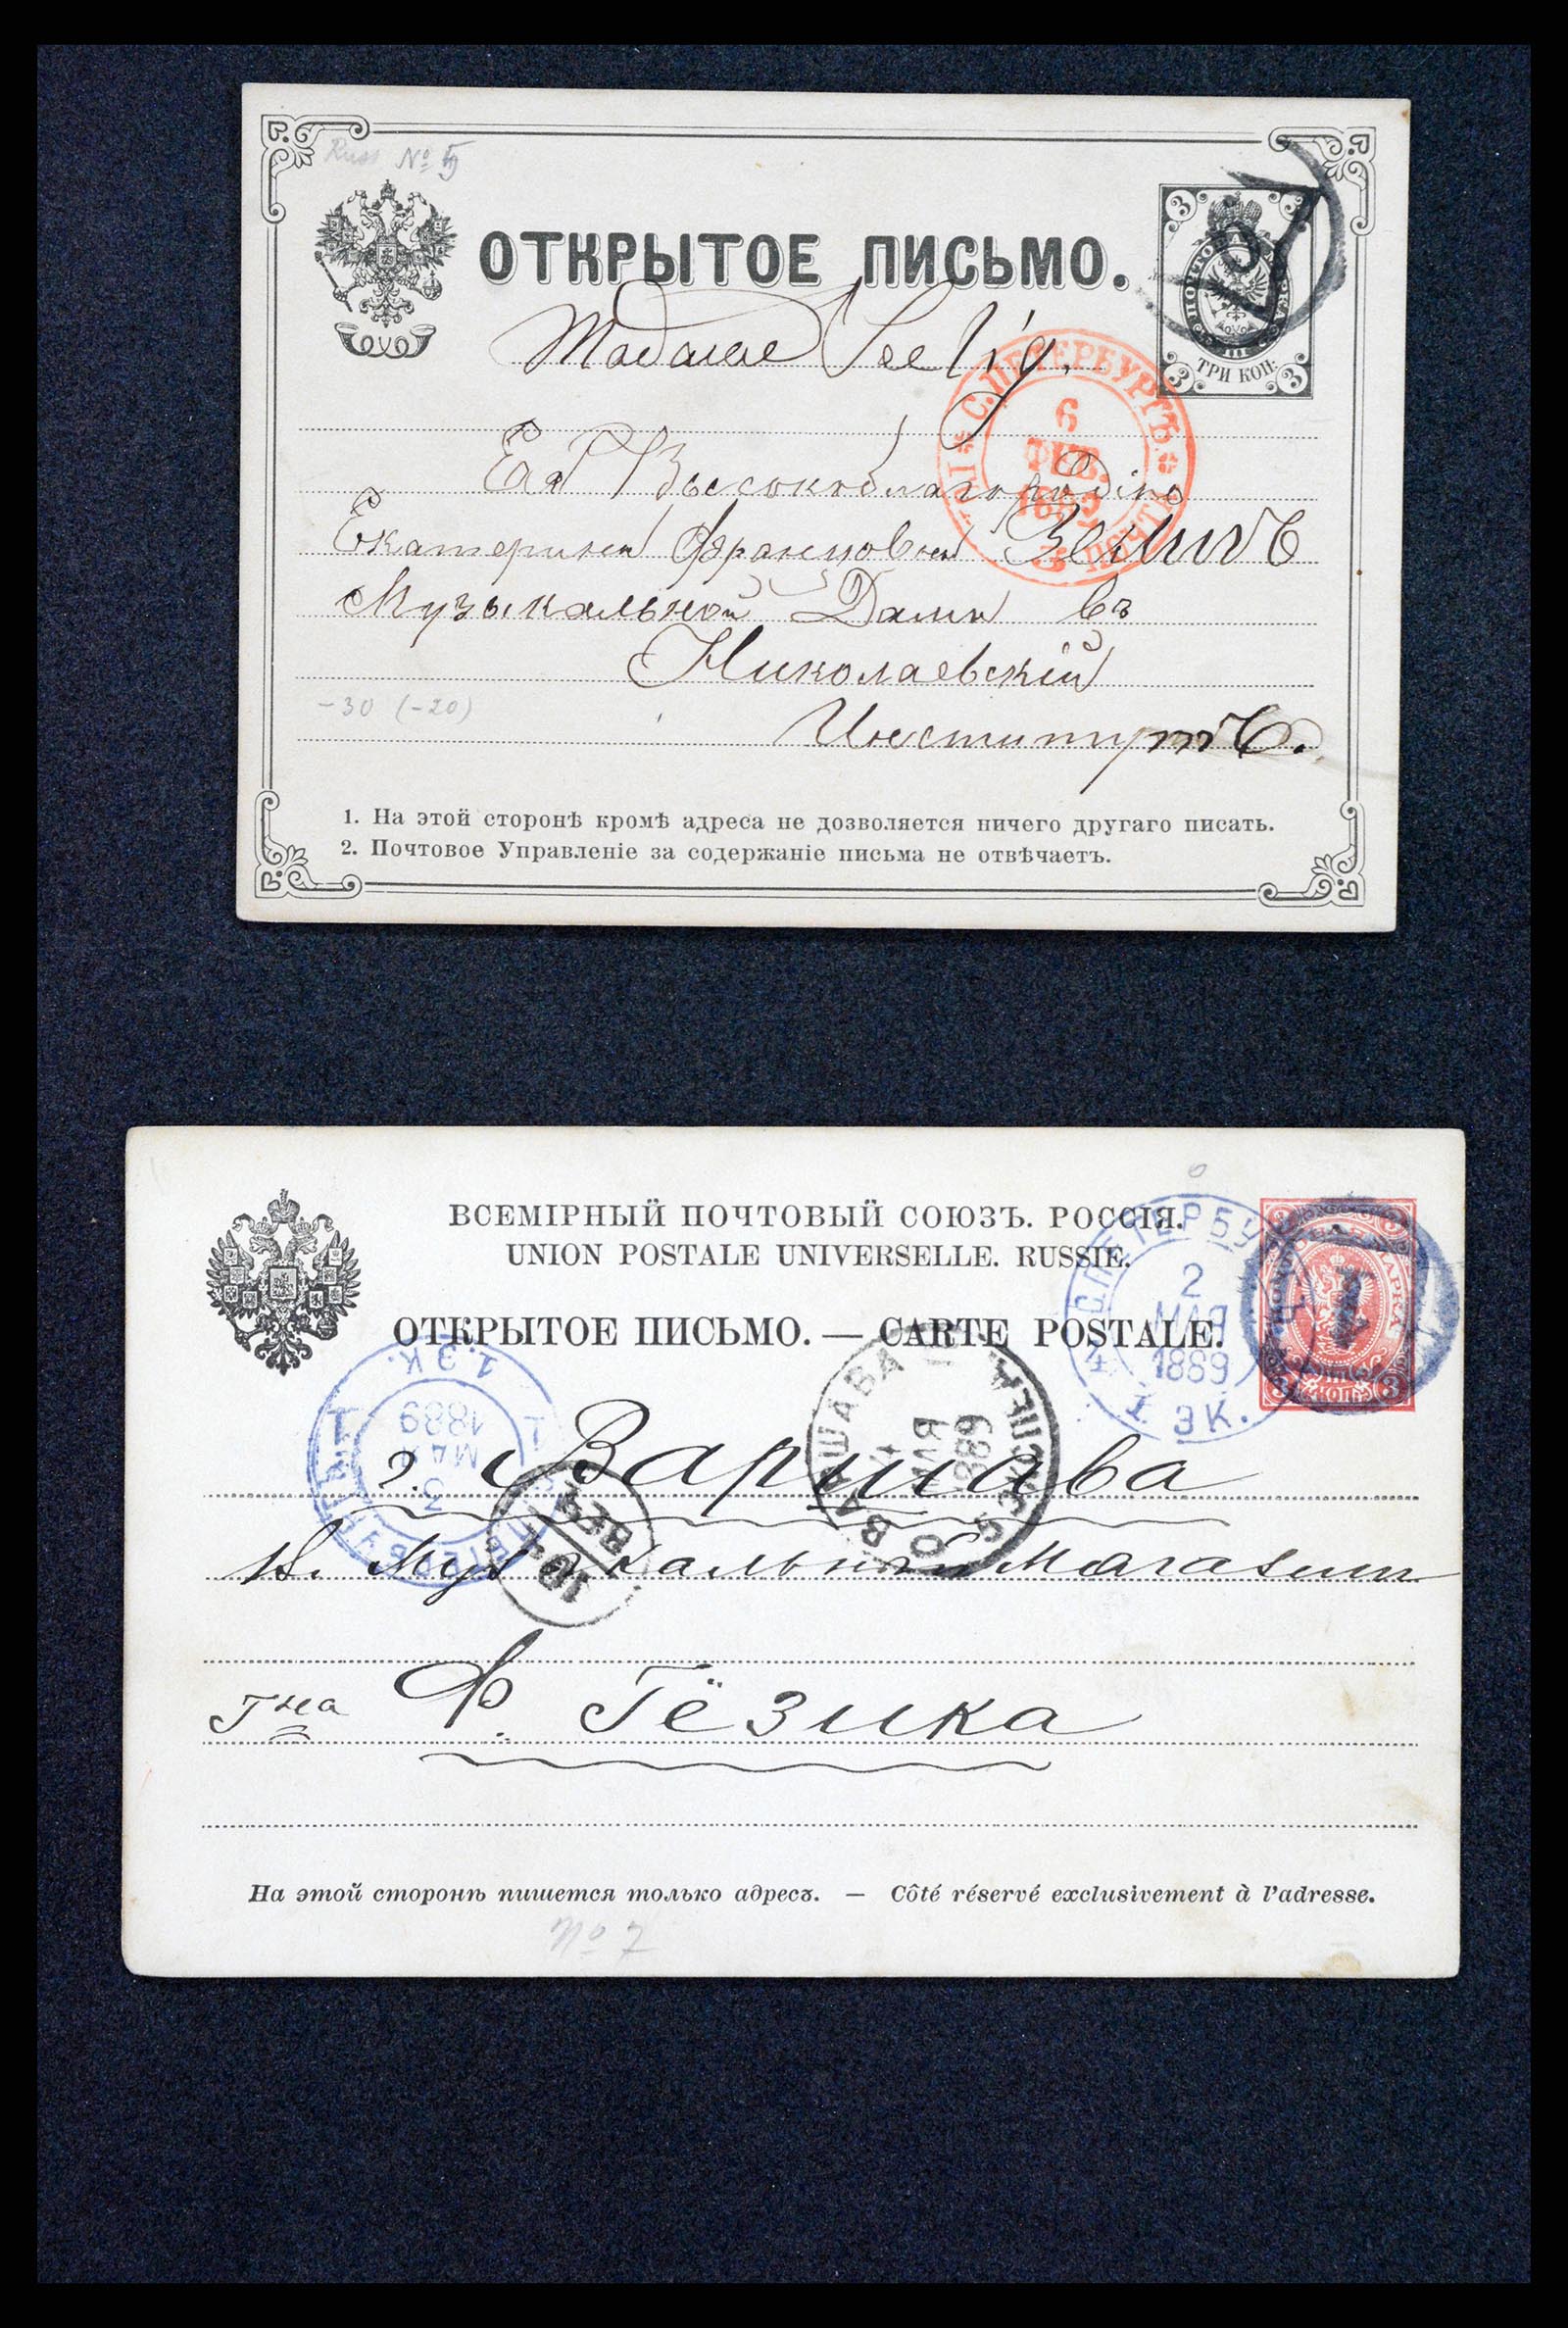 Russ № 5
ОТКРЫТОЕ ПИСЬМО.
3 3
ТРИ КОП.
3 3
Madame Seelig.
С.ПЕТЕРБУРГЪ
6
ФЕВ.
Ея Высокоблагородiю
Екатерины Францовны Зелигъ
Музыкальной Дамы въ
Николаевскiй
-30 (-20)
Институтъ.
1. На этой сторонѣ кромѣ адреса не дозволяется ничего другаго писать.
2. Почтовое Управленіе за содержаніе письма не отвѣчаетъ.
ВСЕМІРНЫЙ ПОЧТОВЫЙ СОЮЗЪ. РОССІЯ.
UNION POSTALE UNIVERSELLE. RUSSIE.
ОТКРЫТОЕ ПИСЬМО. — CARTE POSTALE.
С.ПЕТЕРБУ
2
МАЯ
1889
I ЭК.
1
1.ЭК.
3
МАЯ
1889
ВАРШАВА
4
МАЯ
1889
10
ВЕЧ.
г. Варшава
въ Музыкальный Магазин
Гна Ф. Гёзика
На этой сторонѣ пишется только адресъ. — Côté réservé exclusivement à l'adresse.
№ 7